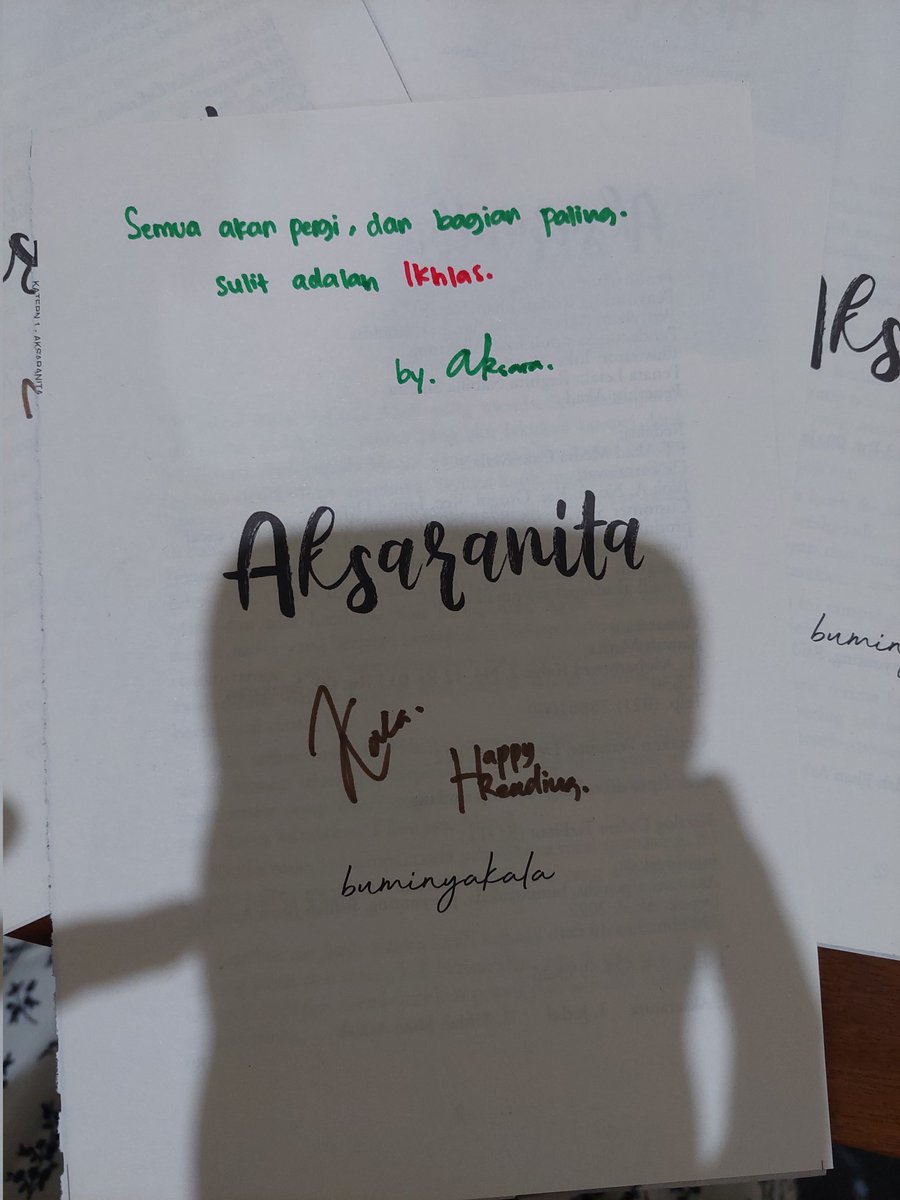 Semua akan pergi, dan bagian paling.
sulit adalah Ikhlas.
by. Aksara.
KATERN 1 - AKSARANITA
Aksaranita
Kala.
Happy
Reading.
buminyakala